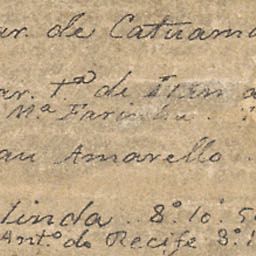 ar. de Catuama
ar. tª de Itam a
Mª Farinha
au Amarello
linda .. 8° 10' 5
Ant.° do Recife 8° 1